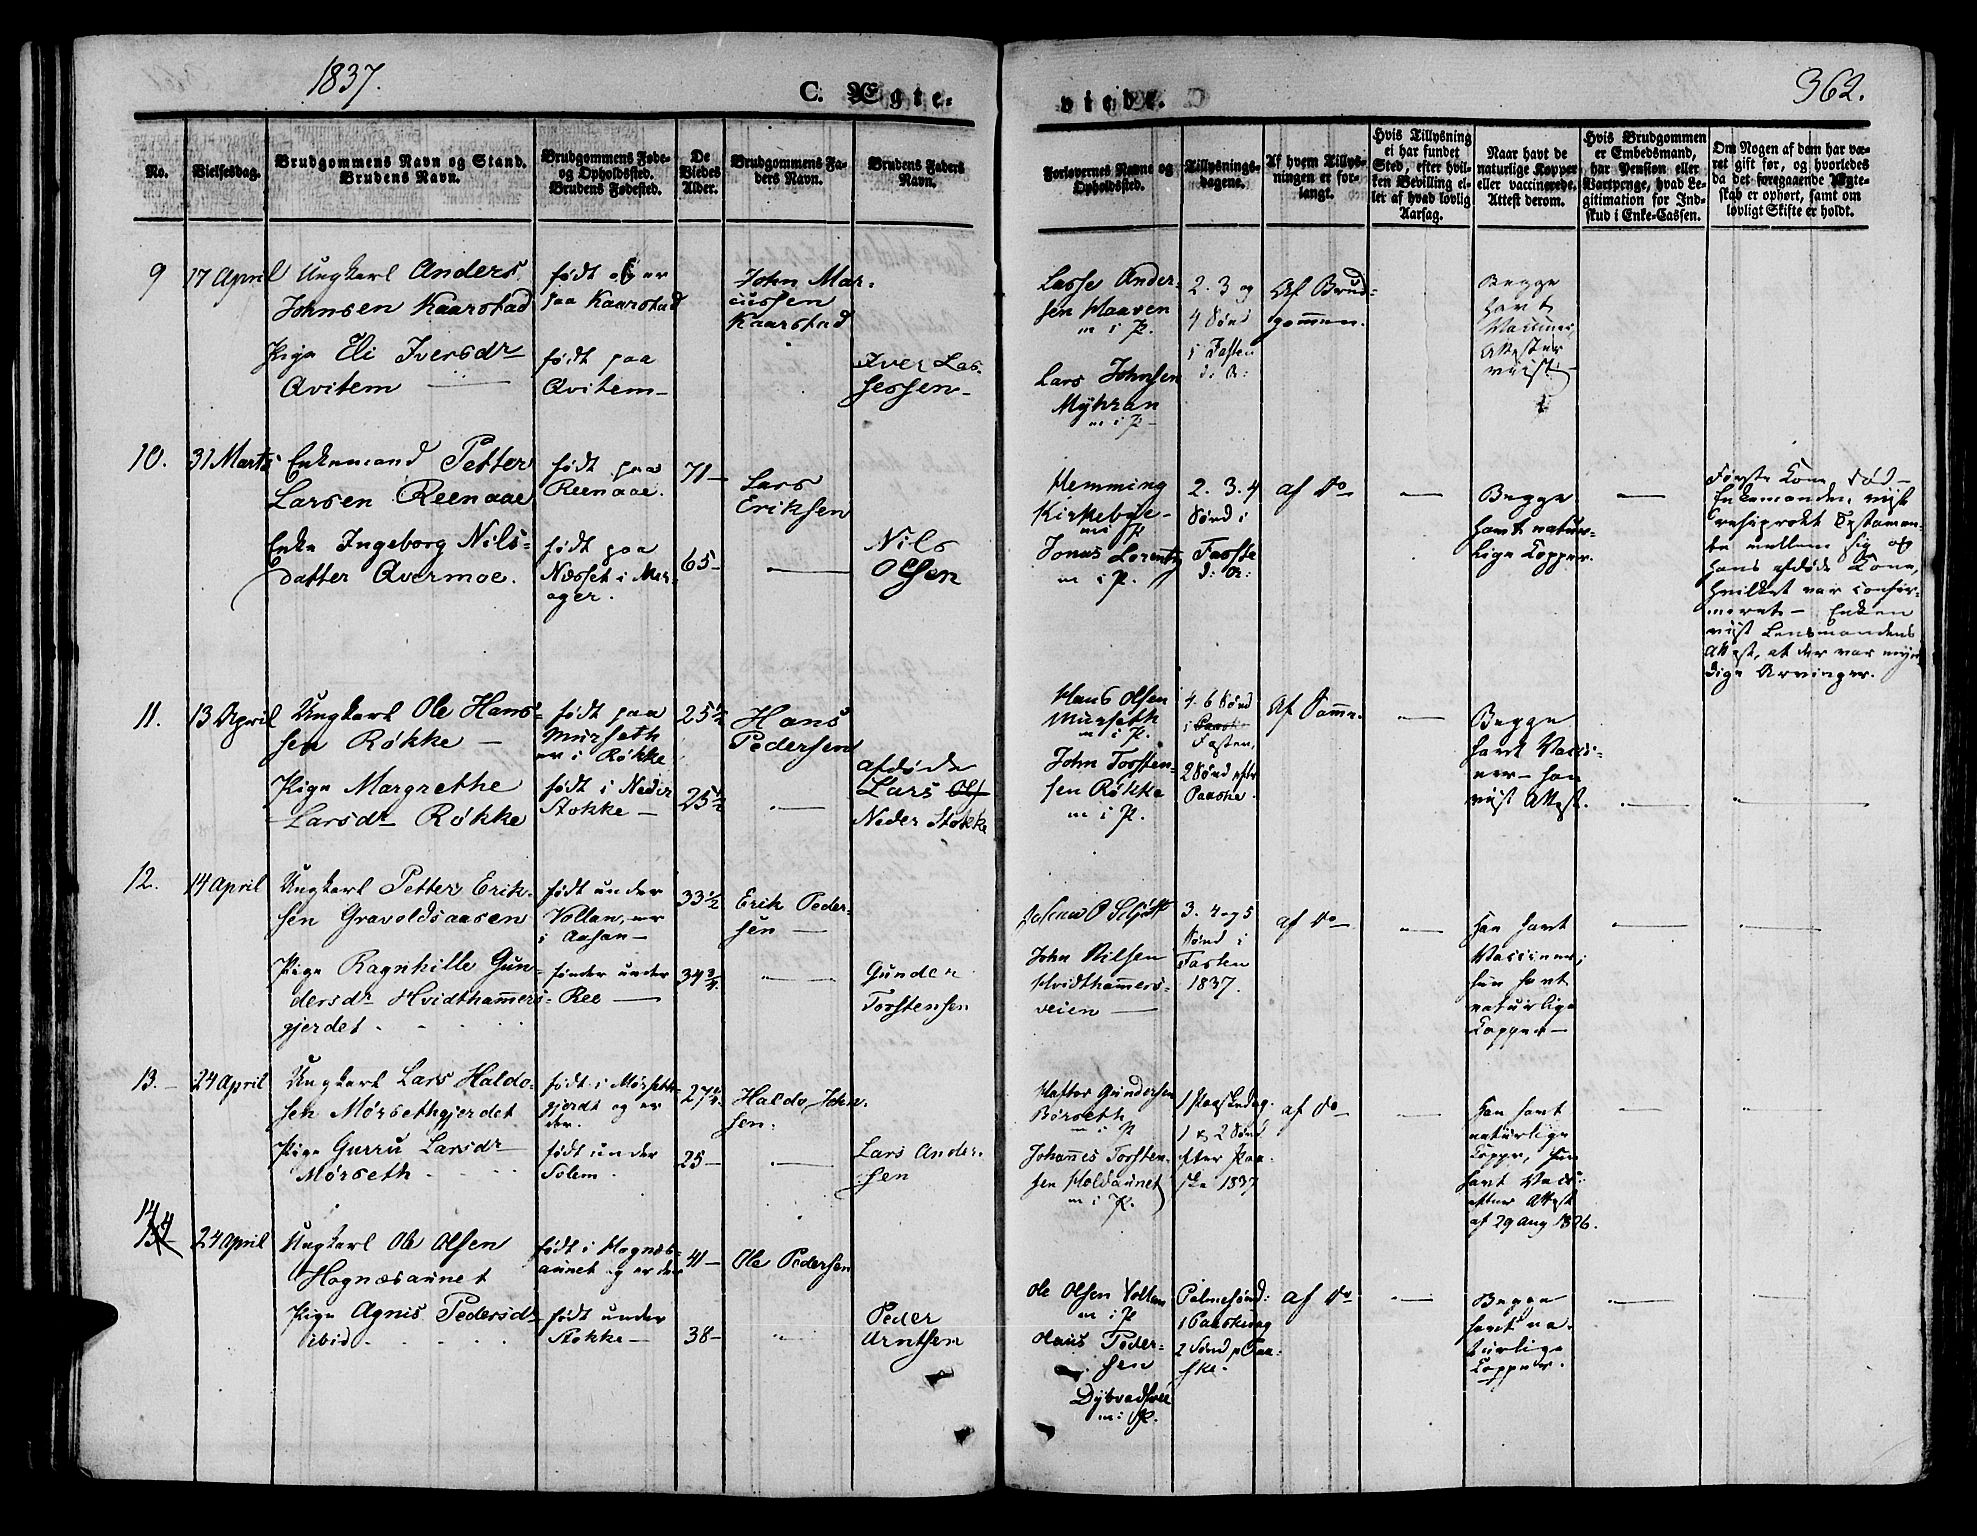 1837.
C. Ægte-
viede.
362.
No.
Vielsesdag.
Brudgommens Navn og Stand.
Brudens Navn.
Brudgommens Føde-
og Opholdssted.
Brudens Fødested.
De
Viedes
Alder.
Brudgommens Fa-
ders Navn.
Brudens Faders
Navn.
Forlovernes Navne og
Opholdssted.
Tillysnings-
dagene.
Af hvem Tillys-
ningen er for-
langt.
Hvis Tillysning
ei har fundet
Sted, efter hvil-
ken Bevilling el-
ler af hvad lovlig
Aarsag.
Naar havt de
naturlige Kopper
eller vaccinerede.
Attest derom.
Hvis Brudgommen
er Embedsmand,
har Pension eller
Vartpenge, hvad Le-
gitimation for Ind-
skud i Enke-Cassen.
Om Nogen af dem har væ-
ret gift før, og hvorledes
da det foregaaende Ægte-
skab er ophørt, samt om
lovligt Skifte er holdt.
9
17 April
Ungkarl Anders
Johnsen Kaarstad
Pige Eli Iversdr
Qvitem
født og er
paa Kaarstad
født paa
Qvitem
John Mar-
cussen
Kaarstad
Iver Las-
sessen
Lasse Ander-
sen Haaven
m i P.
Lars Johnsen
Myhran
m i P
2. 3 og
4 Sønd
i Fasten
Af Brud-
gommen.
Begge
havt
Vaccine,
Attester
viist
10.
31 Marts
Enkemand Petter
Larsen Reenaae
Enke Ingeborg Nils-
datter Qvermoe.
født paa
Reenaae.
født paa
Næsset i Mer-
ager.
71
65
Lars
Eriksen
Nils
Olsen
Hemming
Kirkebye
m i P
Jonas Lorentz
m i P.
2. 3. 4
Sønd i
Faste
af Do
Begge
havt natur-
lige Kopper.
Første Kone død
Enkemanden viist
resiprokt Testamen-
te mellem sig og
hans afdøde Kone,
hvilket var confir-
meret. Enken
viist Lensmandens
Attest, at der var myn-
dige Arvinger.
11.
13 April
Ungkarl Ole Han-
sen Røkke
Pige Margrethe
Larsdr Røkke
født paa
Mürseth
er i Røkke
født i Neder
Stokke
25 1/2
25 1/2
Hans
Pedersen
afdøde
Lars Ols
Neder Stokke
Hans Olsen
Mürseth
m i P.
John Torsten-
sen Røkke
m i P.
4. 6 Sønd
i Paaske
Fasten,
2 Sønd efter
Paaske.
Af Samme.
Begge
havt Vacci-
ner
viist Attest.
12.
14 April
Ungkarl Petter Erik-
sen Gravoldsaasen
Pige Ragnhille Gun-
dersdr Hvidthammers-
gjerdet.
født under
Vollan, er
i Aasen
født under
Ree
33 1/2
34 3/4
Erik Peder-
sen
Gunder
Torstensen
John Nilsen
Hvidthammers-
veien
3. 4 og 5
Sønd i
Fasten
1837.
af Do
Han havt
Vacciner;
hun havt
naturlige
Kopper
13.
24 April
Ungkarl Lars Haldo-
sen Mørsethgjerdet
Pige Gurru Larsdr
Mørseth
født i Mørseth-
gjerdt og er
der.
født under
Solem.
27 1/4
25
Haldo John-
sen.
Lars Ander-
sen
Børseth
m i P
Johannes Torsten-
sen Holdaunet
m i P.
1 Paaskedag.
1 & 2 Sønd
efter Paa-
ske 1837
af Do
Han havt
naturlige
Kopper, hun
havt Vacc:
efter Attest
af 29 Aug 1826.
14
24 April
Ungkarl Ole Olsen
Hognæsaunet
Pige Agnis Pedersdr
ibid.
født i Hognæs-
aunet og er der
født under
Stokke
41
38
Ole Pedersen
Peder
Arntsen
Ole Olsen Voltan
m i P.
Hans Peder-
sen
Dybvadsvee
m i P.
Palmesønd:
1 Paaskedag
2 Sønd p Paa-
ske.
af Do
Begge
havt na-
turlige
Kopper.